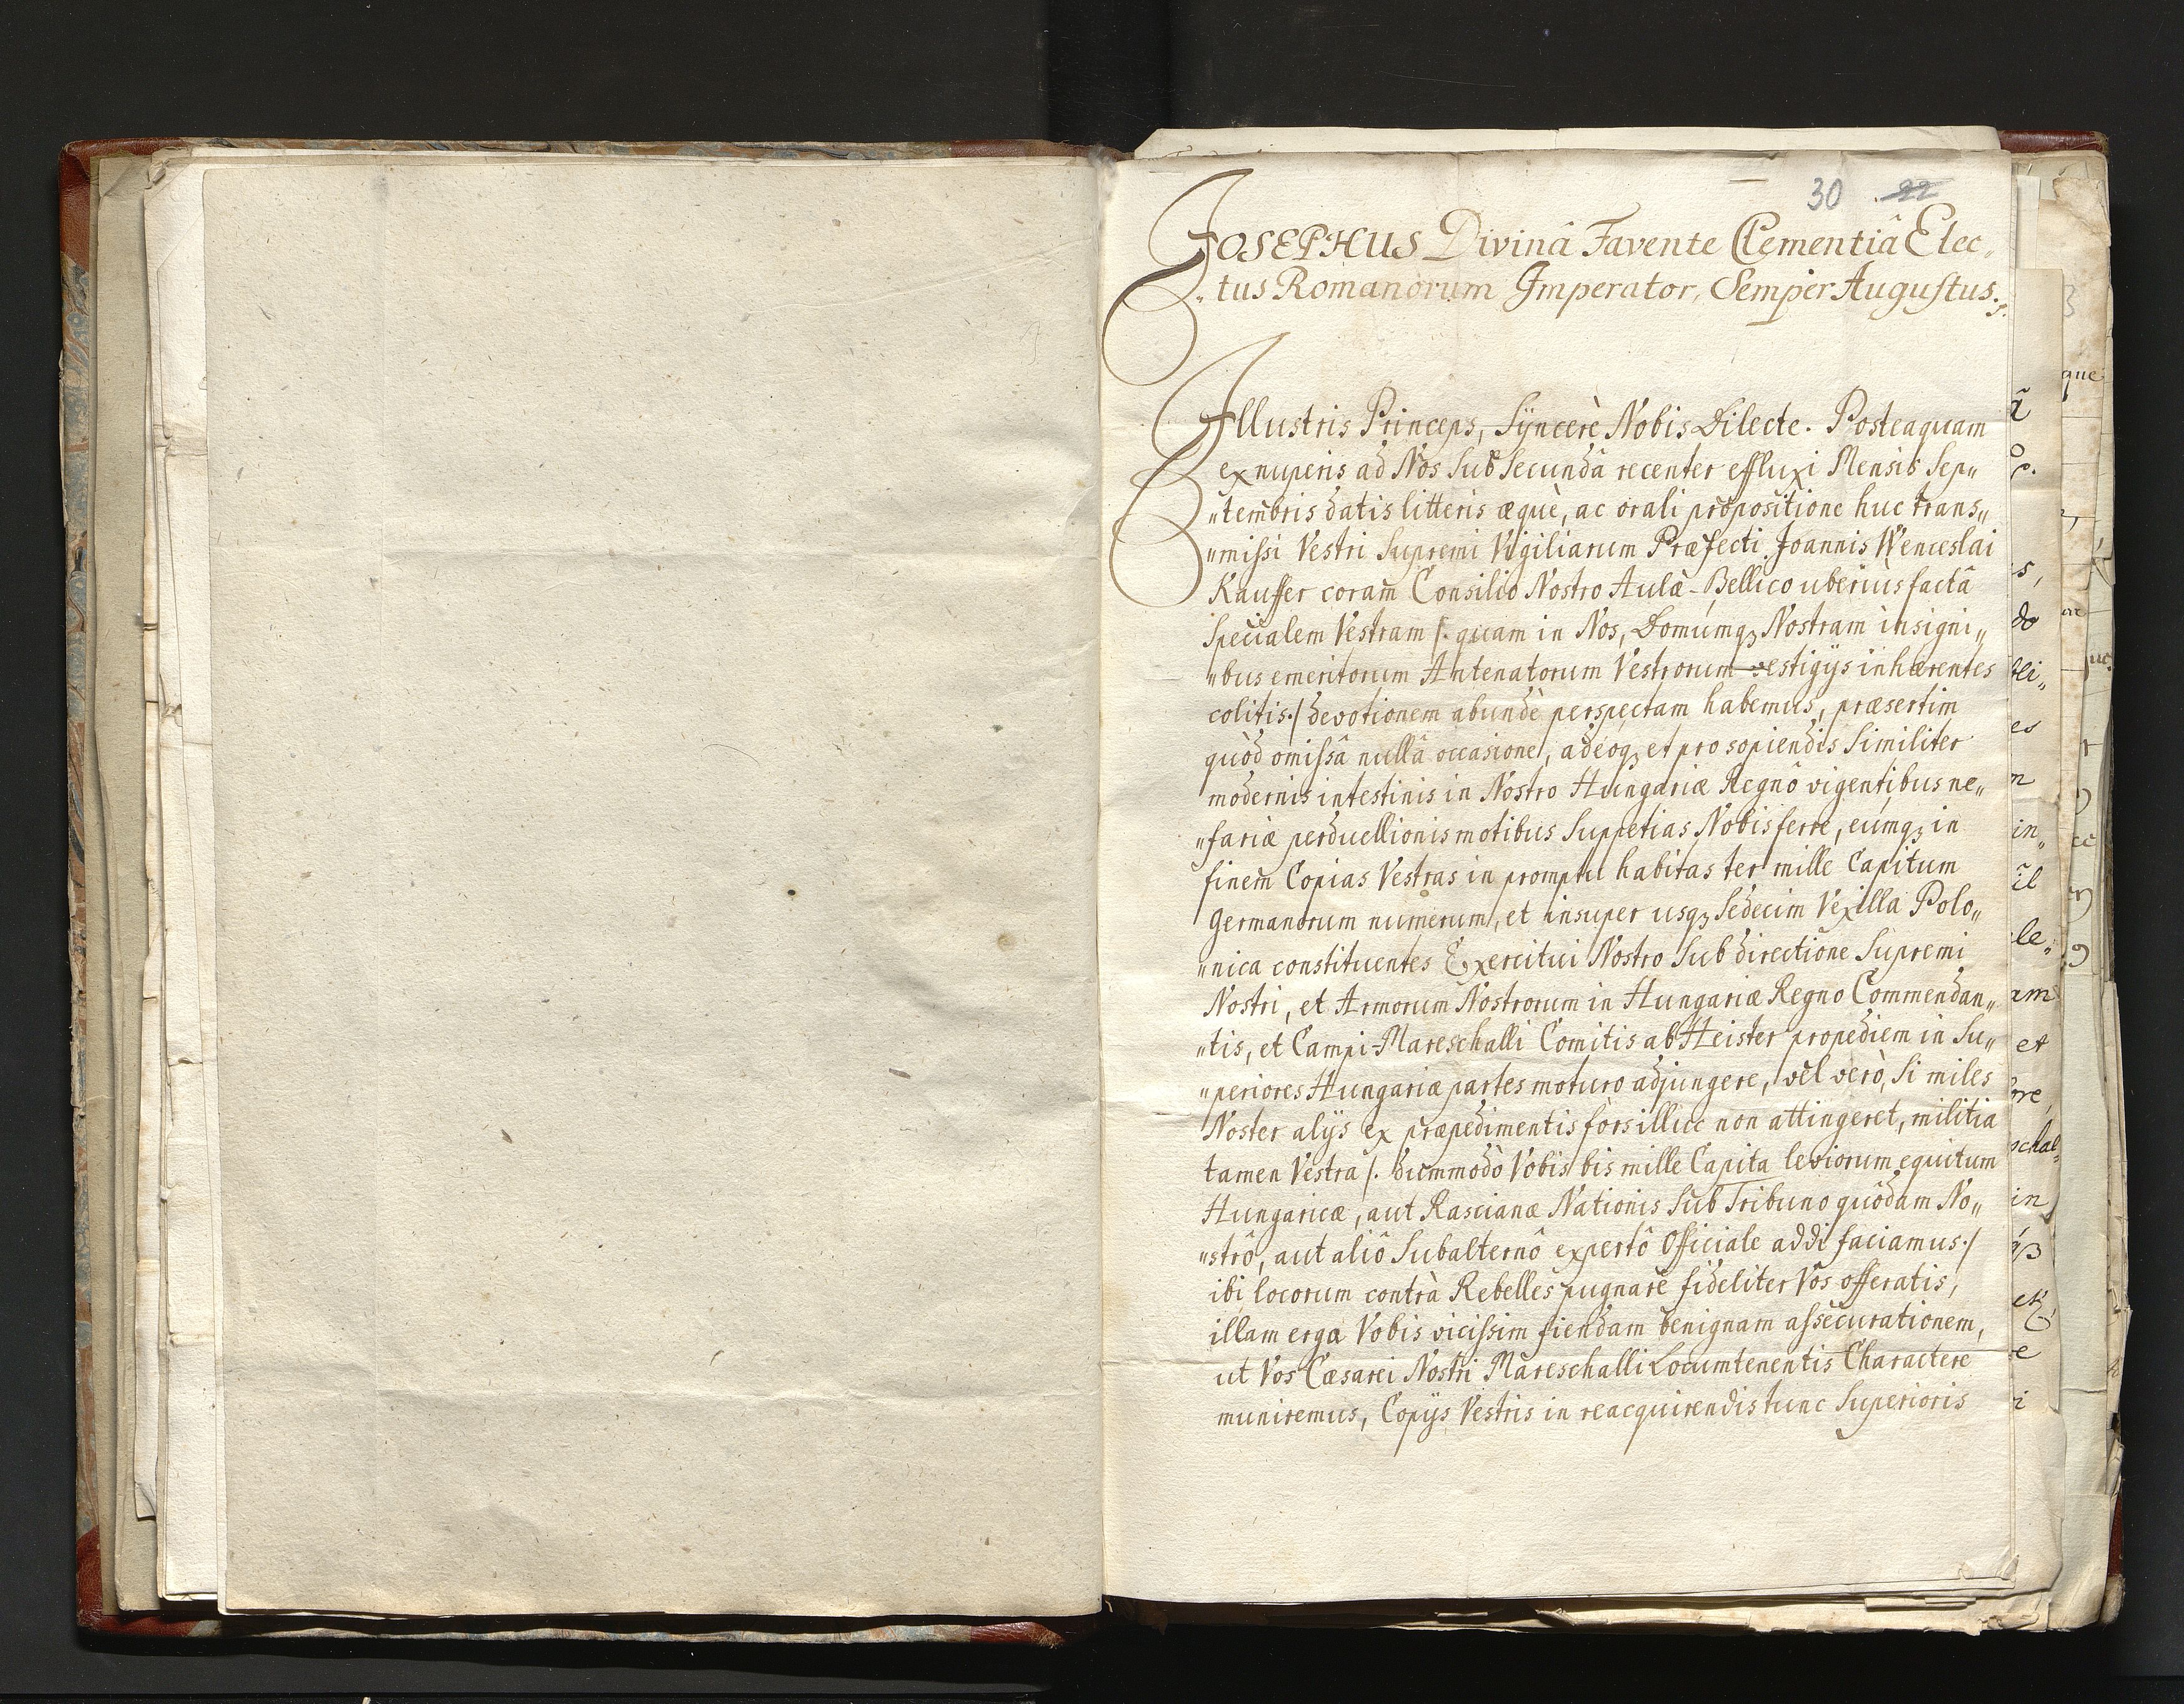 30 22
JOSEPHUS Divinâ Favente Clementiâ Elec„
„tus Romanorum Imperator, Semper Augustus.
Illustris Princeps, Sÿncerè Nobis Dilecte. Posteaquam
ex nuperis ad Nos sub secundâ recenter effluxi Mensis Sep„
„tembris datis litteris æquè, ac orali propositione huc trans„
„missi Vestri Supremi Vigiliarum Præfecti Joannis Wenceslai
Kauffer coram Consilio Nostro Aulæ-Bellico uberiùs factâ
specialem Vestram /. quam in Nos, Domumqꝫ Nostram insigni„
„bus emeritorum Antenatorum Vestrorum vestigÿs inhærentes
colitis./ devotionem abundè perspectam habemus, præsertim
quòd omissâ nullâ occasione, adeoqꝫ et pro sopiendis similiter
modernis intestinis in Nostro Hungariæ Regno vigentibus ne„
„fariæ perduellionis motibus suppetias Nobis ferre, eumqꝫ in
finem Copias Vestras in promptu habitas ter mille Capitum
Germanorum numerum, et insuper usqꝫ sedecim Vexilla Polo„
„nica constituentes Exercitui Nostro sub directione Supremi
Nostri, et Armorum Nostrorum in Hungariæ Regno Commendan„
„tis, et Campi-Mareschalli Comitis ab Heister propediem in Su„
„periores Hungariæ partes moturo adjungere, vel verò, si miles
Noster alÿs ex præpedimentis fors illuc non attingeret, militia
tamen Vestra /. dummodò Vobis bis mille Capita leviorum equitum
Hungaricæ, aut Rascianæ Nationis sub Tribuno quôdam No„
„strô, aut aliô Subalternô expertô Officiale addi faciamus./
ibi locorum contrà Rebelles pugnare fideliter Vos offeratis,
illam erga Vobis vicissim fiendam benignam assecurationem,
ut Vos Cæsarei Nostri Mareschalli Locumtenentis Charactere
muniremus, Copÿs Vestris in reacquirendis tunc Superioris